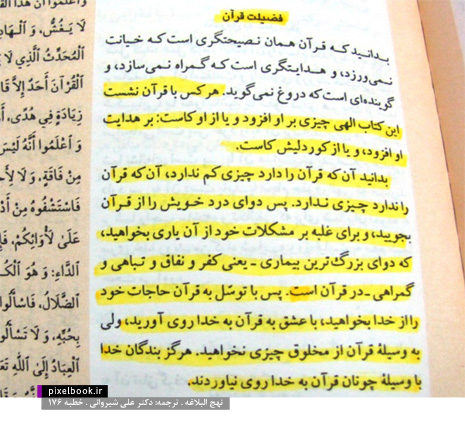 فضیلت قرآن
بدانید که قرآن همان نصیحتگری است که خیانت
نمی‌ورزد، و هدایتگری است که گمراه نمی‌سازد، و
گوینده‌ای است که دروغ نمی‌گوید. هر کس با قرآن نشست
این کتاب الهی چیزی بر او افزود و یا از او کاست: بر هدایت
او افزود، و یا از کوردلیش کاست.
بدانید آن که قرآن را دارد چیزی کم ندارد، آن که قرآن
را ندارد چیزی ندارد. پس دوای درد خویش را از قرآن
بجویید، و برای غلبه بر مشکلات خود از آن یاری بخواهید،
که دوای بزرگ‌ترین بیماری ـ یعنی کفر و نفاق و تباهی و
گمراهی ـ در قرآن است. پس با توسّل به قرآن حاجات خود
را از خدا بخواهید، با عشق به قرآن به خدا روی آورید، ولی
به وسیلهٔ قرآن از مخلوق چیزی نخواهید. هرگز بندگان خدا
با وسیلهٔ چونان قرآن به خدا روی نیاوردند.
لَا يَغُشُّ، وَ الْهَادِ
الْمُحَدِّثُ الَّذِي لَا
الْقُرْآنَ أَحَدٌ إِلَّا قَا
زِيَادَةٍ فِي هُدًى، أَ
وَ اعْلَمُوا أَنَّهُ لَيْسَ
مِنْ فَاقَةٍ، وَ لَا لِأَحَ
فَاسْتَشْفُوهُ مِنْ أَدْ
عَلَى لَأْوَائِكُمْ، فَإِ
الدَّاءِ: وَ هُوَ الْكُ
الضَّلَالُ، فَاسْأَلُوا
بِحُبِّهِ، وَ لَا تَسْأَ
الْعِبَادُ إِلَى اللَّهِ تَعَا
pixelbook.ir
نهج البلاغه . ترجمه: دکتر علی شیروانی . خطبه ۱۷۶